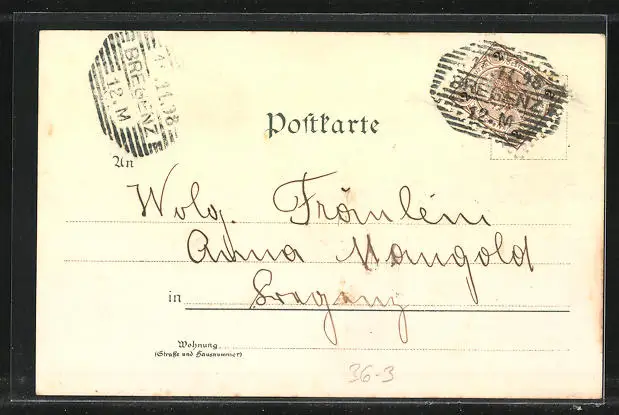 11.98
BREGENZ
12.M
11.98
BREGENZ
12.M
Postkarte
An
Wolg. Fräulein
Anna Mangold
in Bregenz
Wohnung
(Straße und Hausnummer)
36-3